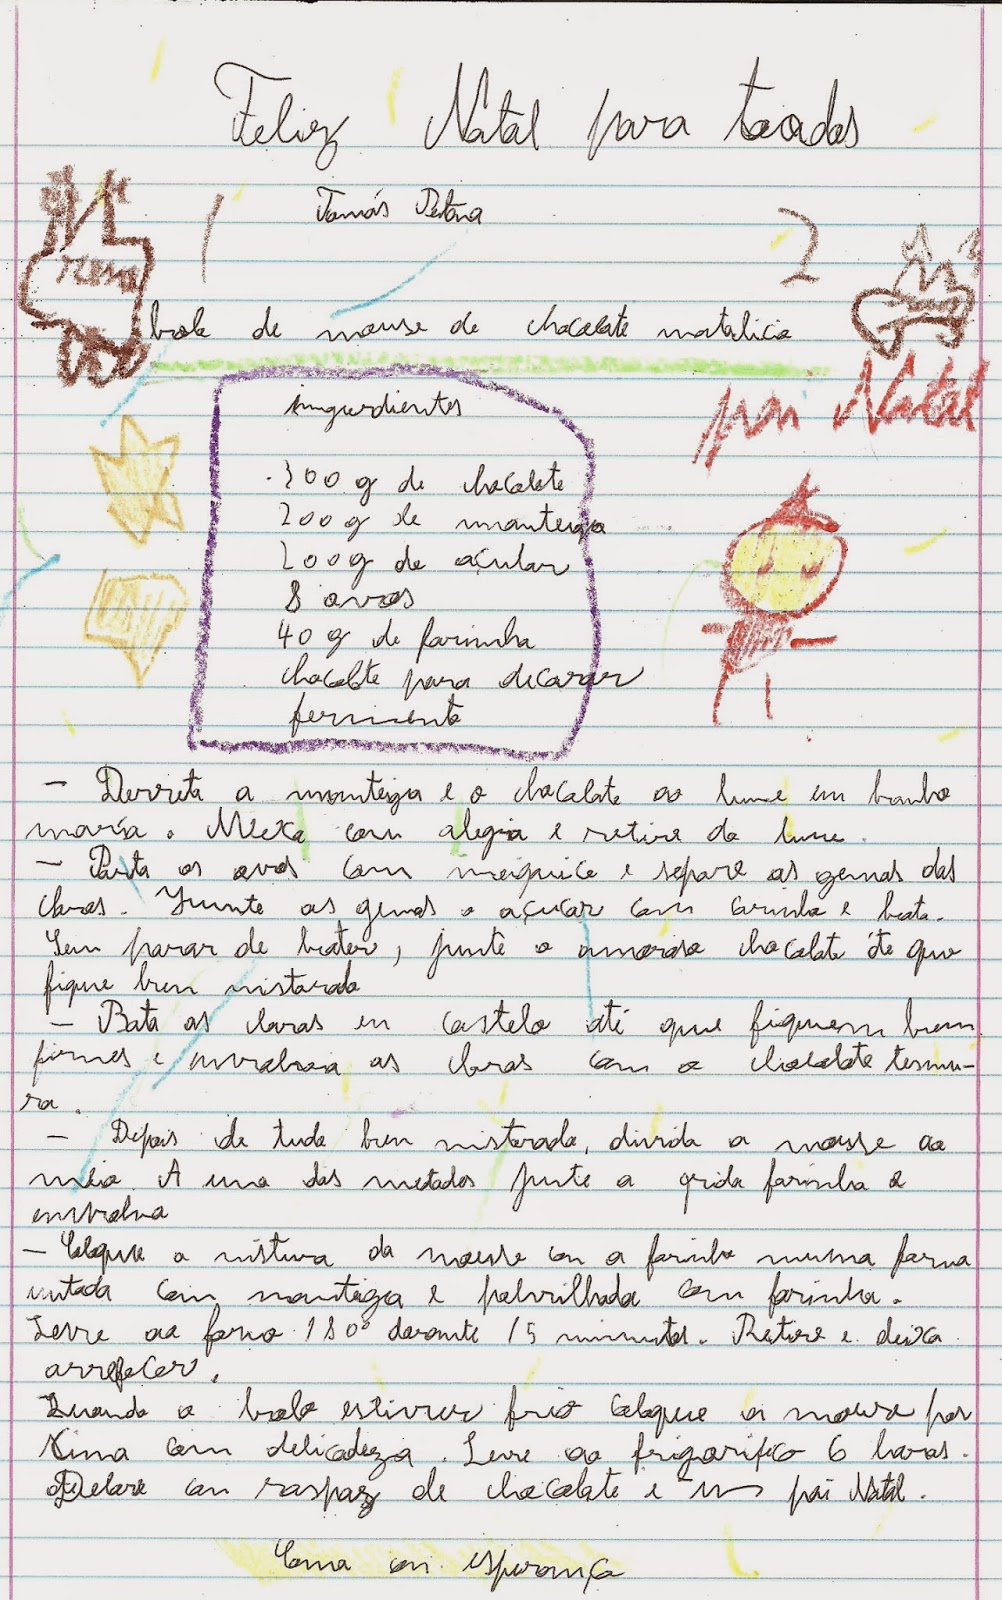 Feliz Natal para todos
Tomás
1
2
rena
bolo de mouse de chocolate natalicio
pai Natal
ingredientes
.300 g de chocolate
200 g de manteiga
200 g de açular
8 ovos
40 g de farinha
chocolate para decorar
fermento
- Derreta a manteiga e o chocolate ao lume em banho
maria. Mexa com alegia e retire do lume.
- Parta os ovos com meiguice e separe as gemas das
claras. Junte as gemas o açucar com carinho e bata.
Sem parar de bater, junte o amoroso chocolate áte que
fique bem misturado
- Bata as claras em castelo até que fiquem bem
firmes e envolva as claras com o chocolate ternu-
ra.
- Depois de tudo bem misturado, divida a mousse ao
meio. A uma das metades junte a farinha e
envolva
- Coloque a mistura da mousse con a farinha numa forma
untada com manteiga e polvrilhada com farinha.
Leve ao forno 180º durante 15 minutos. Retire e deixa
arrefecer.
Quando o bolo estiver frio coloque a mouse por
cima com delicadeza. Leve ao frigorifico 6 horas.
Decore con raspaz de chocolate e um pai Natal.
Coma con esperança